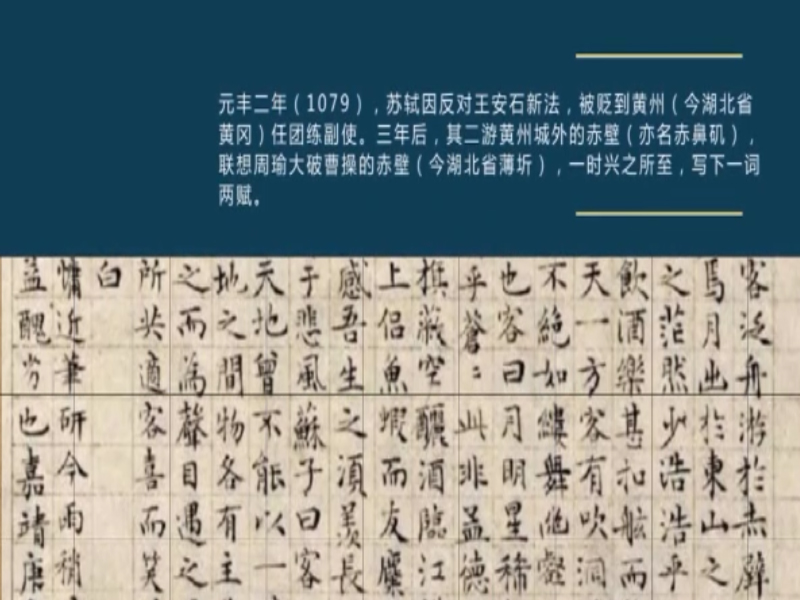 元丰二年（1079），苏轼因反对王安石新法，被贬到黄州（今湖北省
黄冈）任团练副使。三年后，其二游黄州城外的赤壁（亦名赤鼻矶），
联想周瑜大破曹操的赤壁（今湖北省薄圻），一时兴之所至，写下一词
两赋。
客泛舟游於赤壁
焉月出於東山之
之茫然少浩浩乎
飲酒樂甚扣舷而
天一方客有吹洞
不絶如縷舞幽壑
也客曰月明星稀
乎蒼〻此非孟德
旗蔽空釃酒臨江
上侣魚蝦而友麋
感吾生之須羨長
于悲風蘇子曰客
天地曾不能以一
地之間物各有主
之而為聲目遇之
所共適客喜而笑
白
慵近筆研今雨稍
益醜劣也嘉靖唐